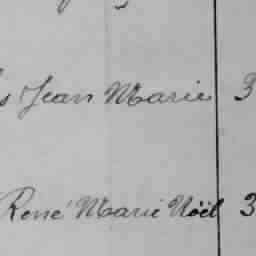 s Jean Marie 3
René Marie Noël 3